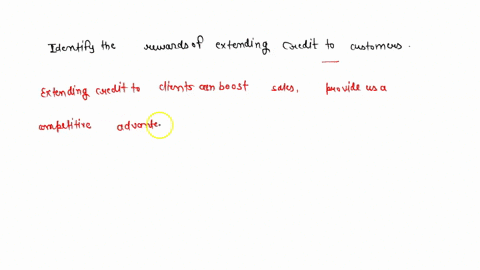 Identify the rewards of extending credit to customers.
Extending credit to clients can boost sales, provide us a
competitive advante.